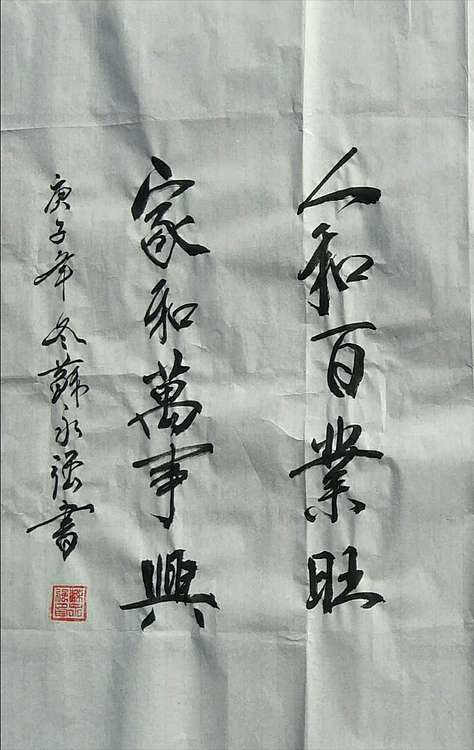 人和百業旺
家和萬事興
庚子年冬蘇永強書